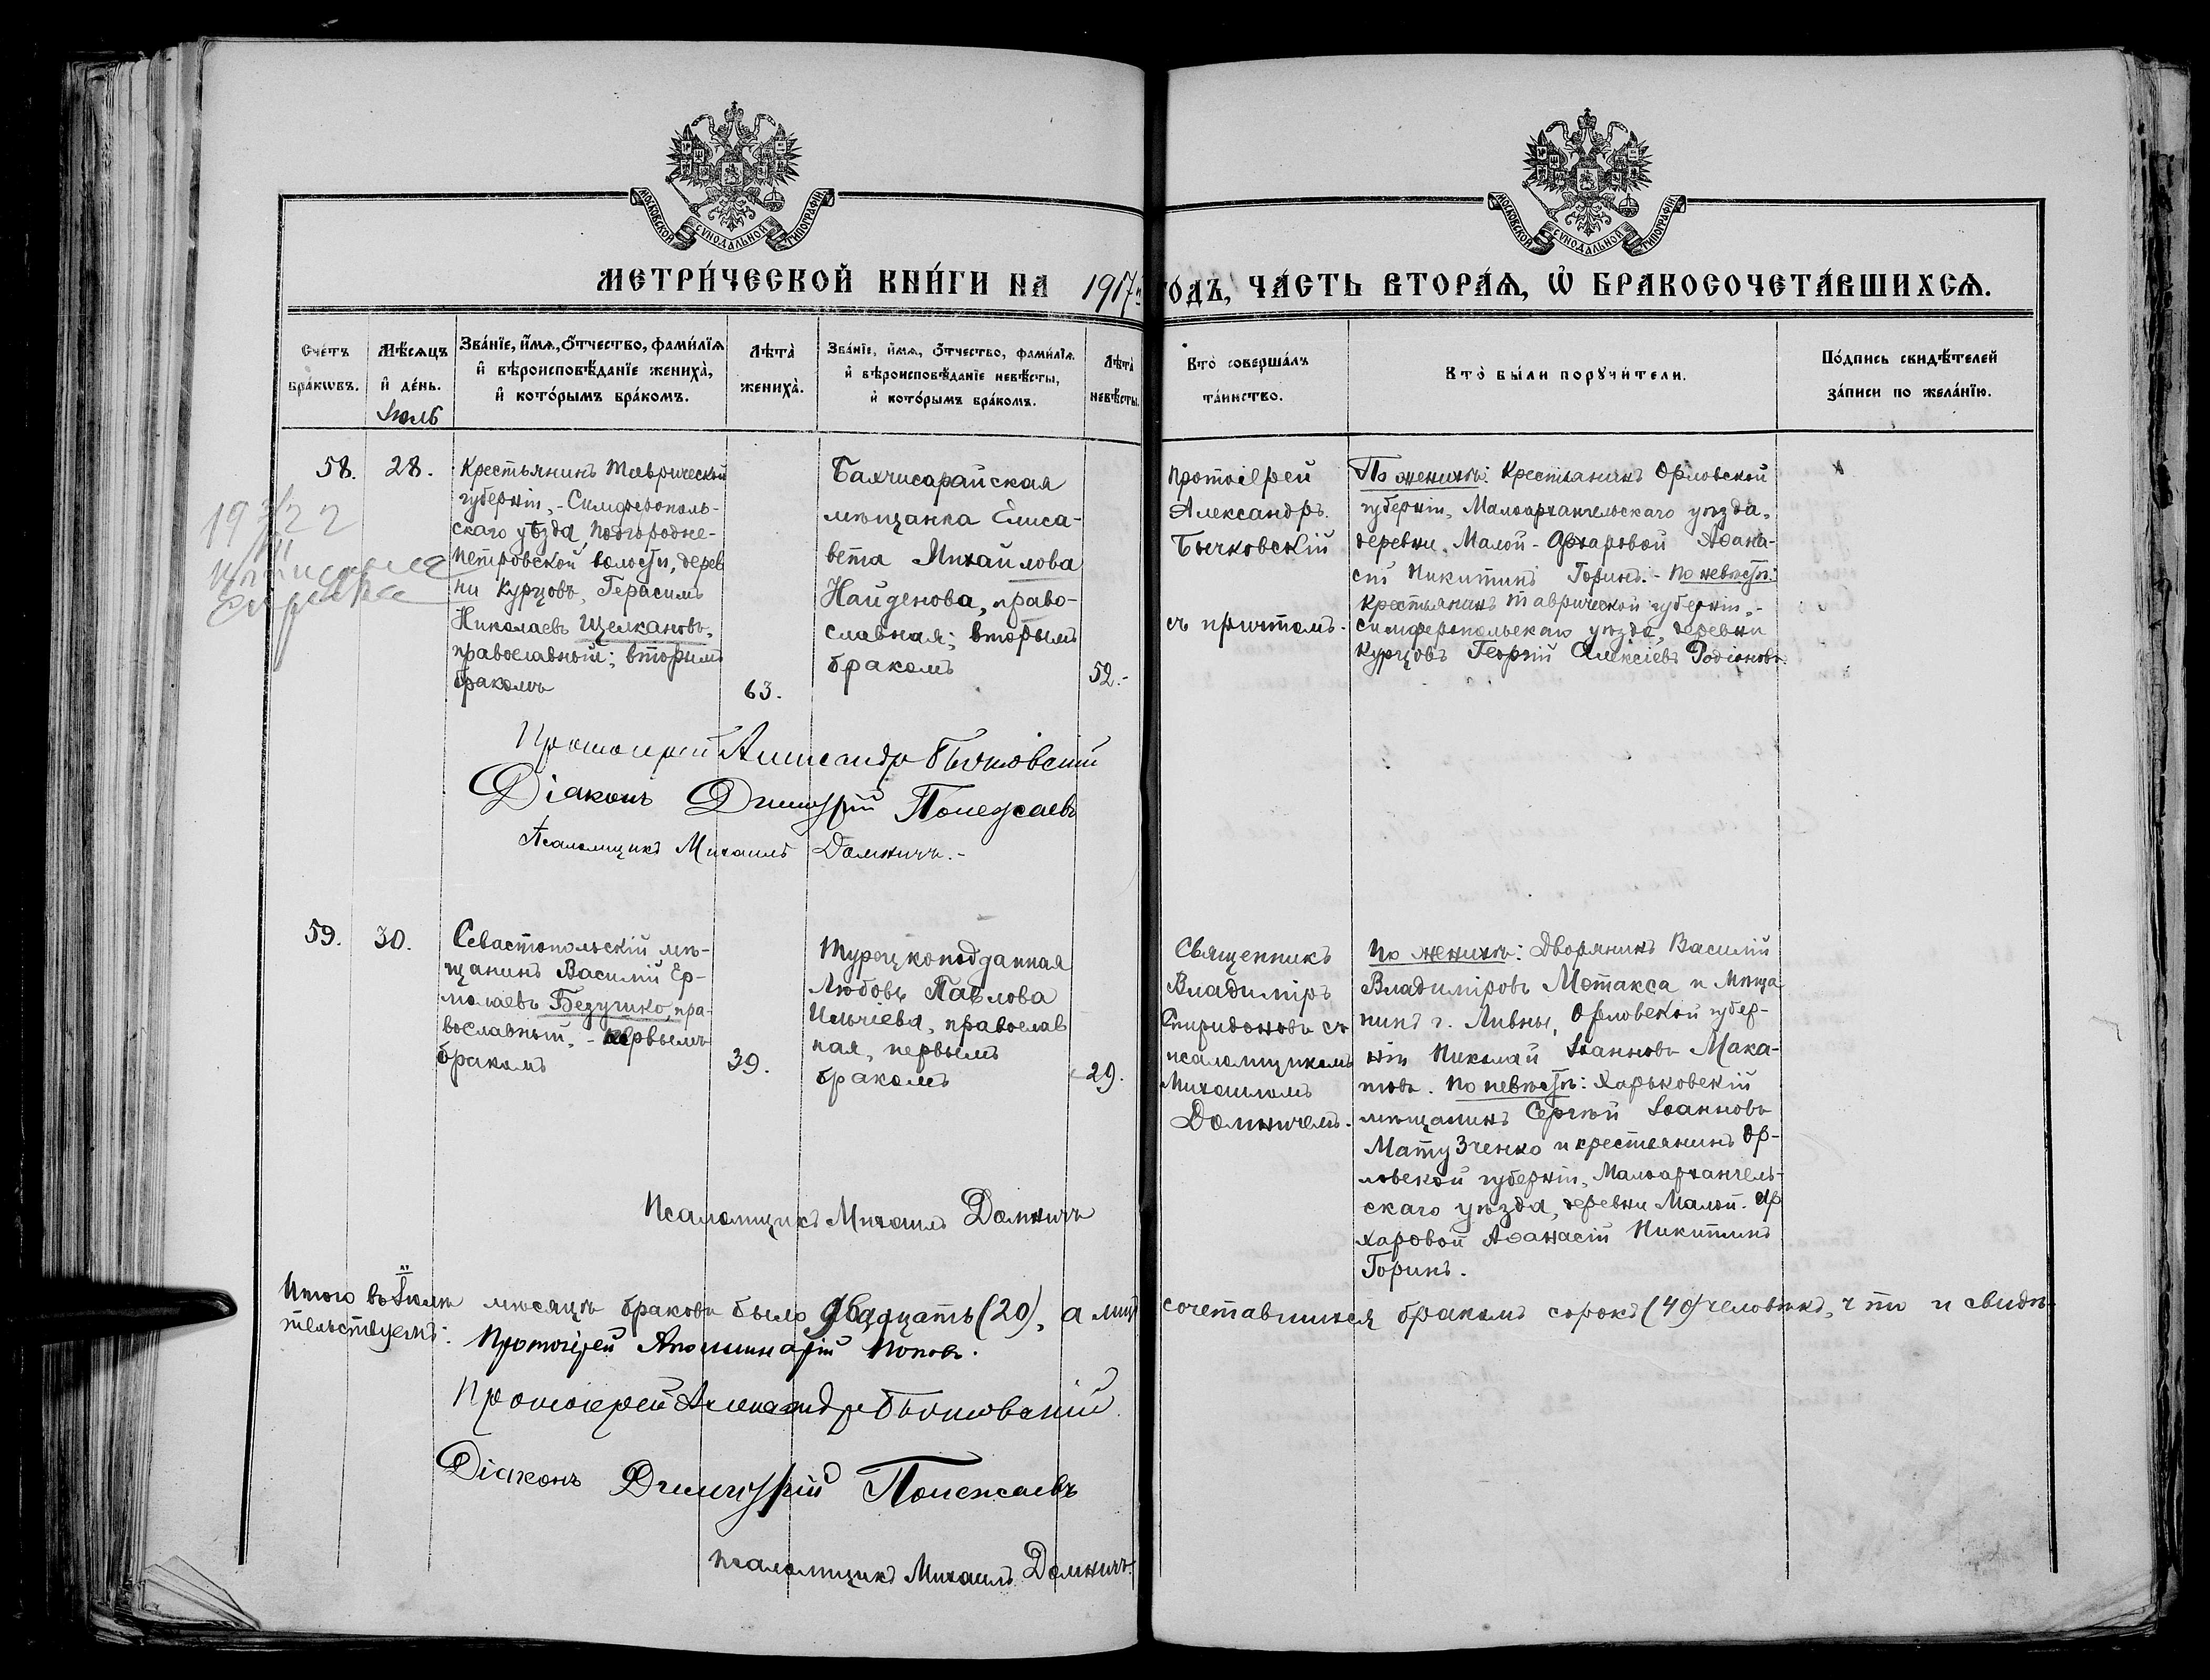 МОСКОВСКОЙ СУНОДАЛЬНОЙ ТИПОГРАФІИ
МОСКОВСКОЙ СУНОДАЛЬНОЙ ТИПОГРАФІИ
МЕТРИ́ЧЕСКОЙ КНИ́ГИ НА 1917й
ГОДЪ, ЧА́СТЬ ВТОРА́Ѧ, Ѽ БРАКОСОЧЕТА́ВШИХСѦ.
Сче́тъ бра́кѡвъ.
Мѣ́сѧцъ и҆ де́нь.
Іюль
Зва́нїе, и҆́мѧ, ѻ҆́тчество, фами́лїѧ
и҆ вѣроисповѣ́данїе жениха̀,
и҆ кото́рымъ бра́комъ.
Лѣ́та̀ жениха̀.
Зва́нїе, и҆́мѧ, ѻ҆́тчество, фами́лїѧ
и҆ вѣроисповѣ́данїе невѣ́сты,
и҆ кото́рымъ бра́комъ.
Лѣ́та̀ невѣ́сты.
Кто̀ соверша́лъ
та́инство.
Кто̀ бы́ли порꙋчи́тели.
По́дпись свидѣ́телей
за́писи по жела́нїю.
58.
28.
Крестьянинъ Таврической
губерніи, - Симферополь-
скаго уѣзда, Подгородне-
Петровской волости, дерев
ни Курцовъ, Герасимъ
Николаевъ Щелкановъ,
православный; вторымъ
бракомъ
63.
Бахчисарайская
мѣщанка Елиса-
вета Михайлова
Найденова, право-
славная; вторымъ
бракомъ
52.-
Протоіерей
Александръ
Бычковскій
съ причтомъ.
По женихѣ: Крестьянинъ Орловской
губерніи, Малоархангельскаго уѣзда,
деревни Малой-Архаровой Аѳана-
сій Никитинъ Горинъ. - По невѣстѣ:
Крестьянинъ Таврической губерніи, -
Симферопольскаго уѣзда, деревни
Курцовъ Георгій Алексіевъ Родіоновъ.
Протоіерей Александръ Бычковскій
Діаконъ Димитрій Полежаевъ
Псаломщикъ Михаилъ Домничъ.-
59.
30.
Севастопольскій мѣ-
щанинъ Василій Ер-
молаевъ Безушко, пра-
вославный, - первымъ
бракомъ
39.
Турецкоподданная
Любовь Павлова
Ильчіева, православ
ная, первымъ
бракомъ
29.
Священникъ
Владиміръ
Спиридоновъ съ
псаломщикомъ
Михаиломъ
Домничемъ.
По женихѣ: Дворянинъ Василій
Владиміровъ Метакса и мѣща
нинъ г. Ливны, Орловской губер-
ніи Николай Іоанновъ Мака-
ровъ. По невѣстѣ: Харьковскій
мѣщанинъ Сергѣй Іоанновъ
Матузченко и крестьянинъ Ор-
ловской губерніи, Малоархангель-
скаго уѣзда, деревни Малой-Ар
харовой Аѳанасій Никитинъ
Горинъ.
Псаломщикъ Михаилъ Домничъ
Итого въ Іюлѣ мѣсяцѣ браковъ было двадцать (20), а лицъ сочетавшихся бракомъ сорокъ (40) человѣкъ, что и свидѣ-
тельствуемъ: Протоіерей Аполлинарій Поповъ.
Протоіерей Александръ Бычковскій
Діаконъ Димитрій Полежаевъ
Псаломщикъ Михаилъ Домничъ.